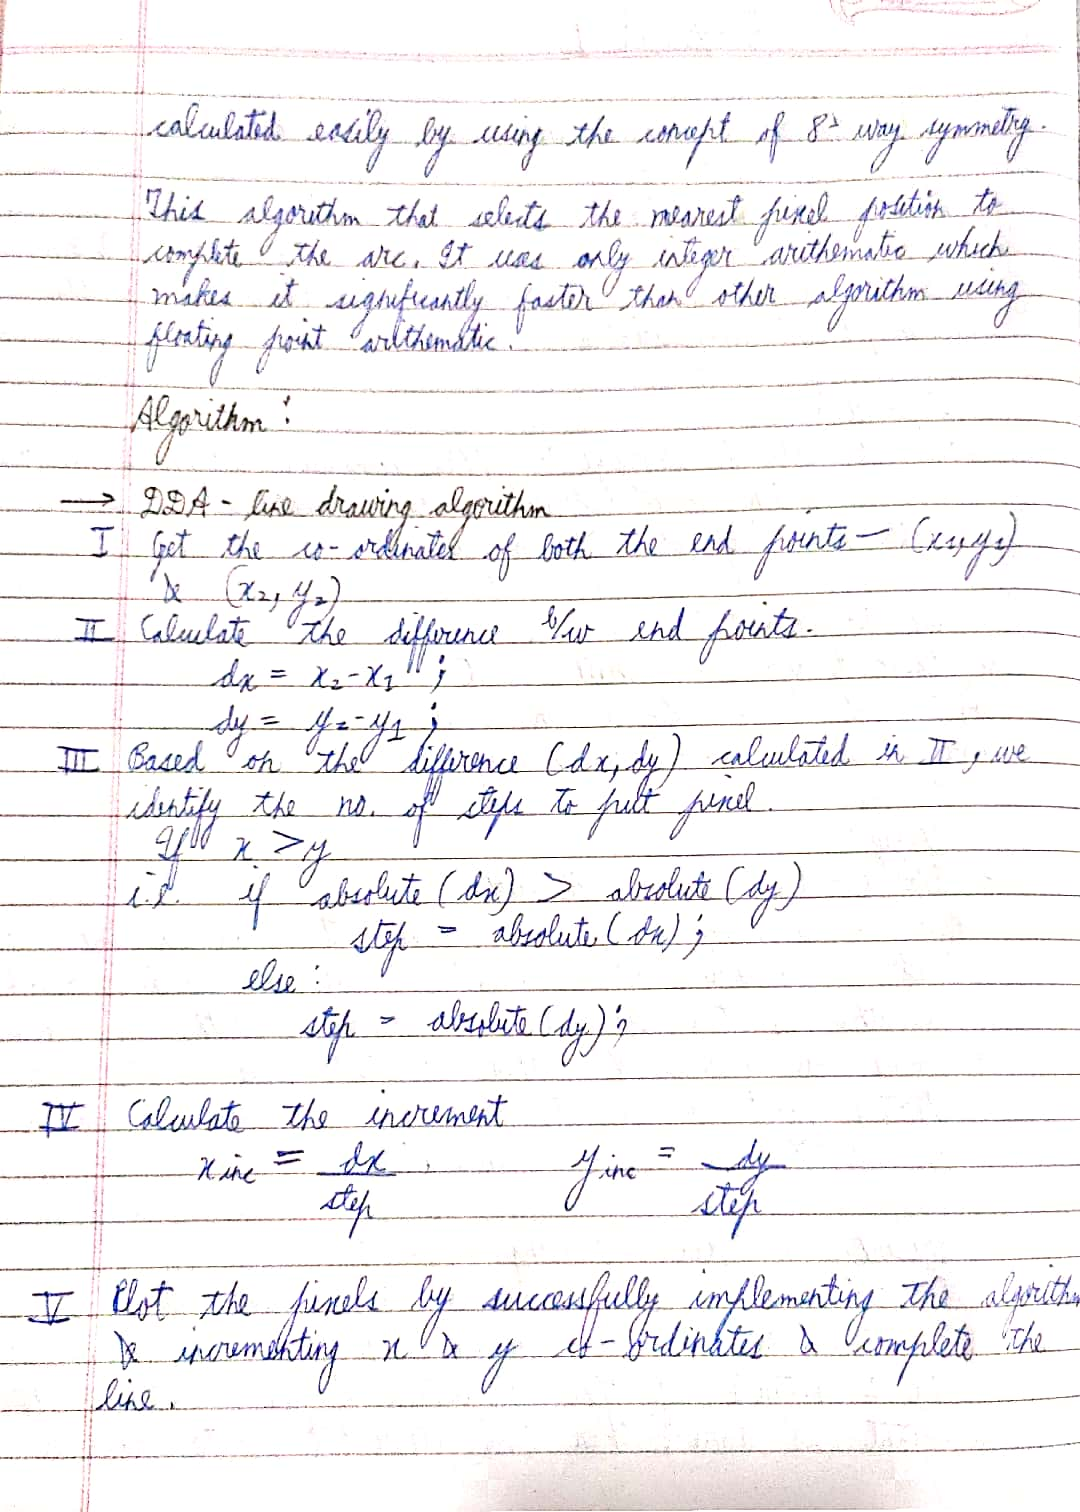 calculated easily by using the concept of 8- way symmetry.
This algorithm that selects the nearest pixel position to
complete the arc. It uses only integer arithematic which
makes it significantly faster than other algorithm using
floating point arithematic.
Algorithm :
→ DDA - line drawing algorithm
I Get the co-ordinates of both the end points - (x1, y1)
& (x2, y2)
II Calculate the difference b/w end points.
dx = x2-x1 ;
dy = y2-y1 ;
III Based on the difference (dx, dy) calculated in II, we
identify the no. of steps to put pixel.
If x > y
i.e. if absolute (dx) > absolute (dy)
step = absolute (dx) ;
else :
step = absolute (dy) ;
IV Calculate the increment
x inc = dx / step y inc = dy / step
V Plot the pixels by successfully implementing the algorithm
& incrementing x & y co-ordinates & complete the
line.